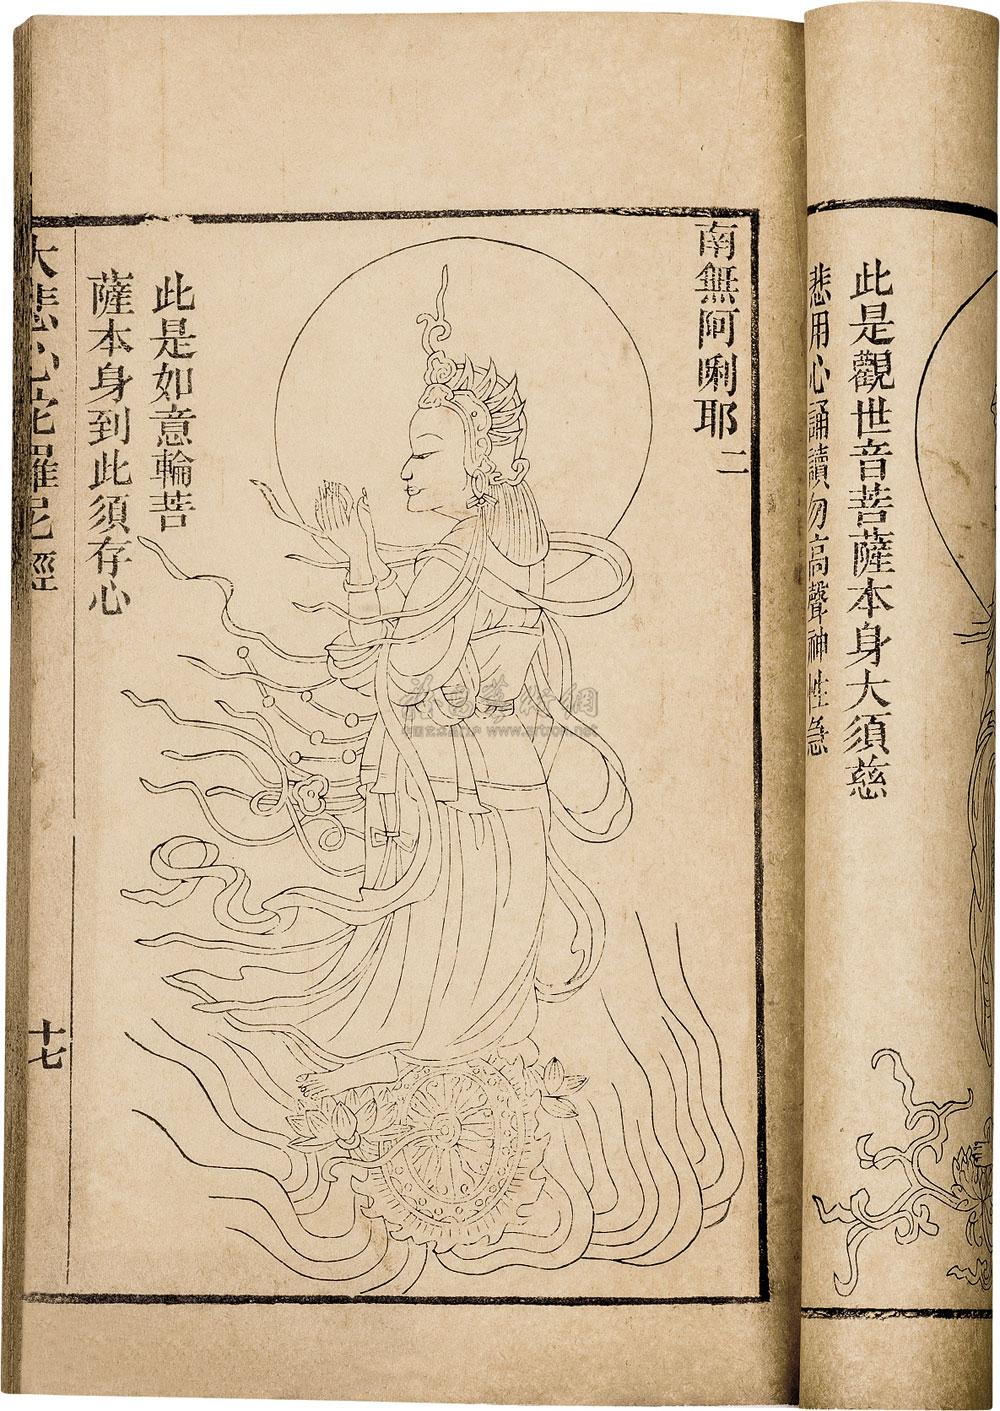 此是觀世音菩薩本身大須慈
悲用心誦讀勿高聲神性急
南無阿唎耶 二
此是如意輪菩
薩本身到此須存心
大悲心陀羅尼經
十七
www.artxun.net